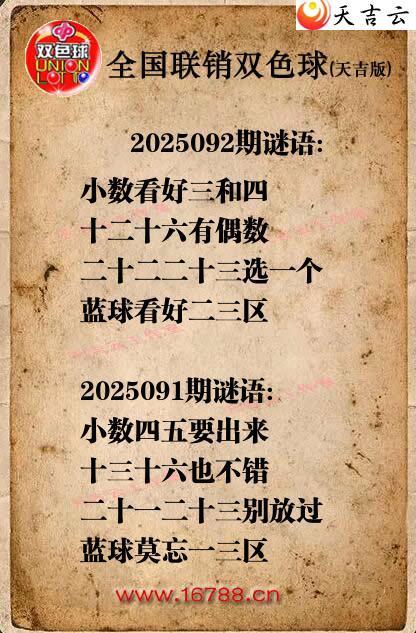 天吉云
双色球
UNION
LOTTO
全国联销双色球(天吉版)
2025092期谜语:
小数看好三和四
十二十六有偶数
二十二二十三选一个
蓝球看好二三区
2025091期谜语:
小数四五要出来
十三十六也不错
二十一二十三别放过
蓝球莫忘一三区
www.16788.cn